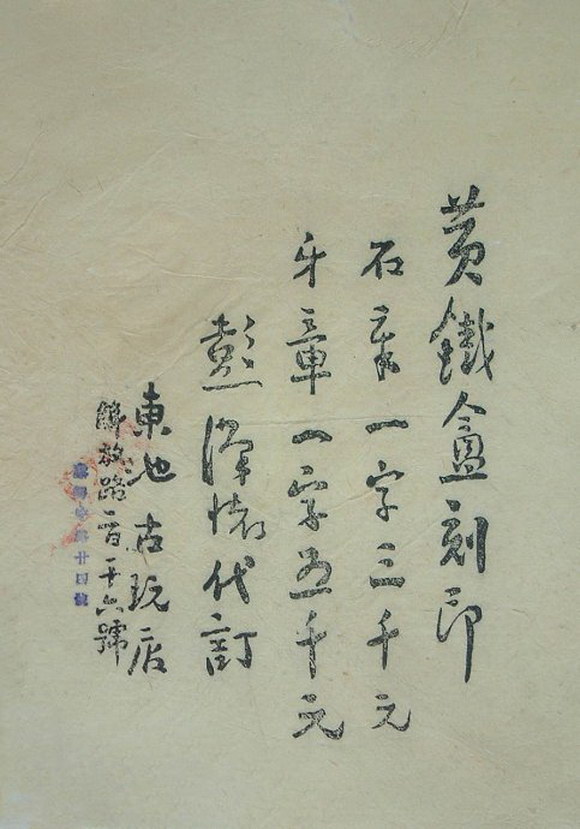 黄鐵盦刻印
石章一字三千元
牙章一字五千元
彭漢懷代訂
東也古玩店
解放路百十六號
廿四號